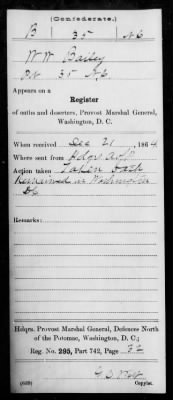 (Confederate.)
B 35 N.C.
W W Bailey
Pvt 35 N.C.
Appears on a
Register
of oaths and deserters, Provost Marshal General,
Washington, D. C.
When received Dec 21, 1864
Where sent from Hdqrs A of P
Action taken Taken Oath
Remained in Washington
DC
Remarks:
Hdqrs. Provost Marshal General, Defences North
of the Potomac, Washington, D. C.;
Reg. No. 295, Part 742, Page 72
(639) Copyist.